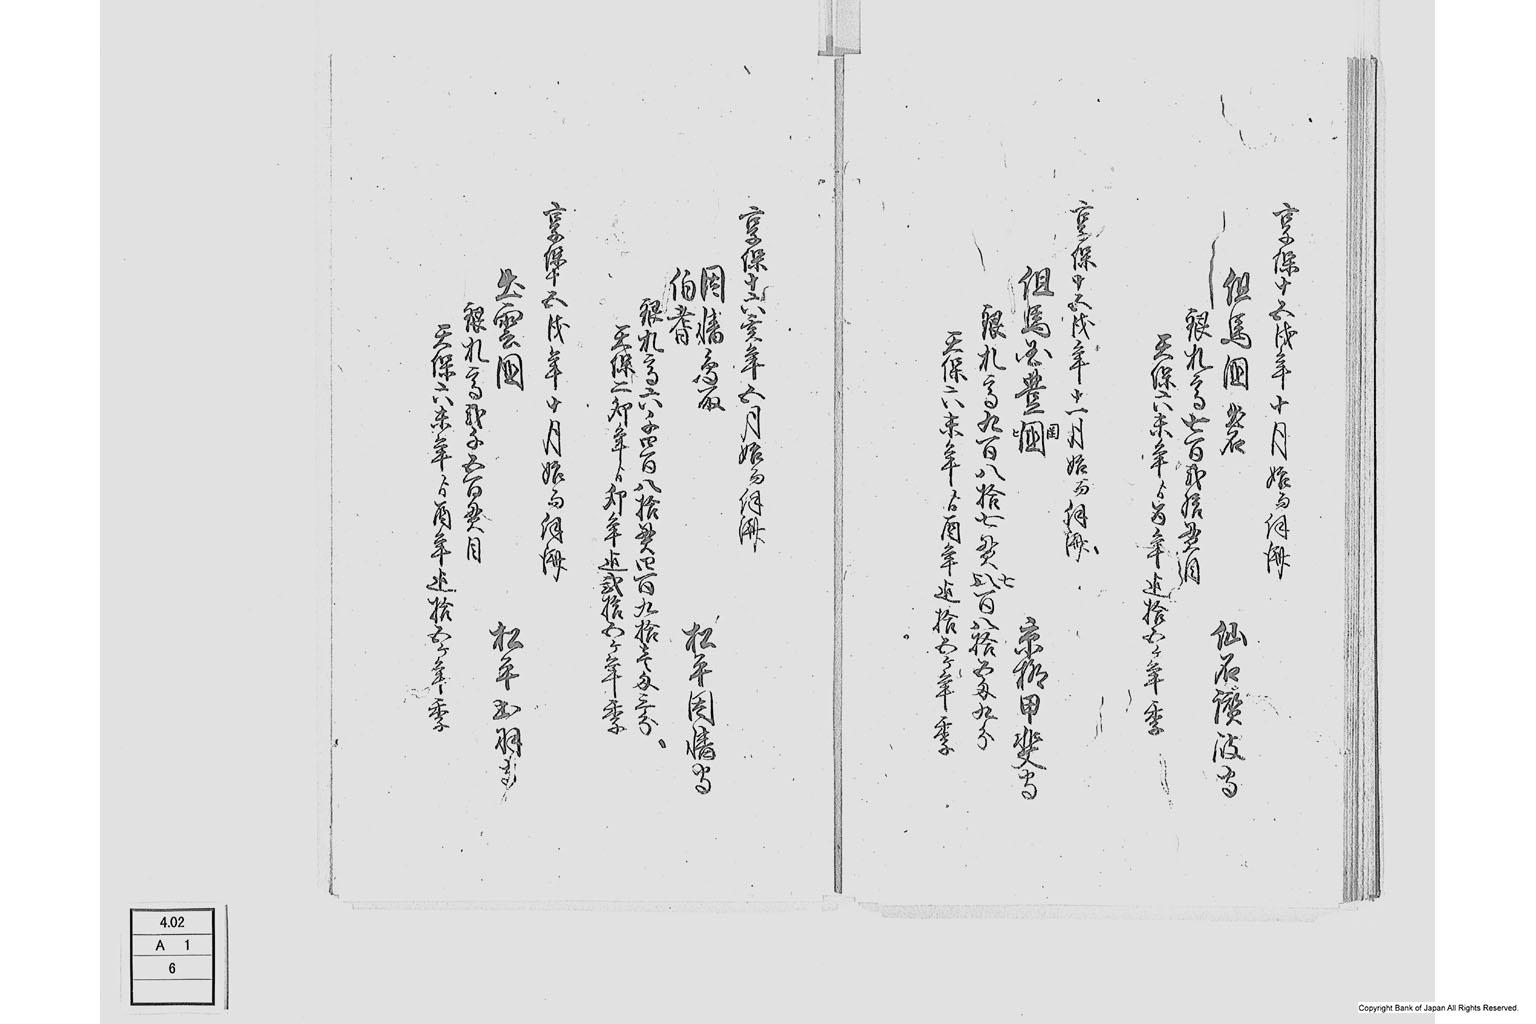 享保十五戌年十月始而伺済
但馬國出石
仙石讃岐守
銀札高七百弐拾貫目
天保六未年ゟ
年迄拾五ケ年季
享保十五戌年十一月始而伺済
但馬国豊岡
京極甲斐守
銀札高九百八拾七貫七百八拾五匁九分
天保六未年ゟ酉年迄拾五ケ年季
享保十六亥年五月始而伺済
因幡鳥取
伯耆
松平因幡守
銀札高六千四百八拾貫四百九拾壱匁三分
天保二卯年ゟ卯年迄弐拾五ケ年季
享保十五戌年十月始而伺済
出雲國
松平出羽守
銀札高弐千五百貫目
天保六未年ゟ酉年迄拾五ケ年季
4.02
A 1
6
Copyright Bank of Japan All Rights Reserved.